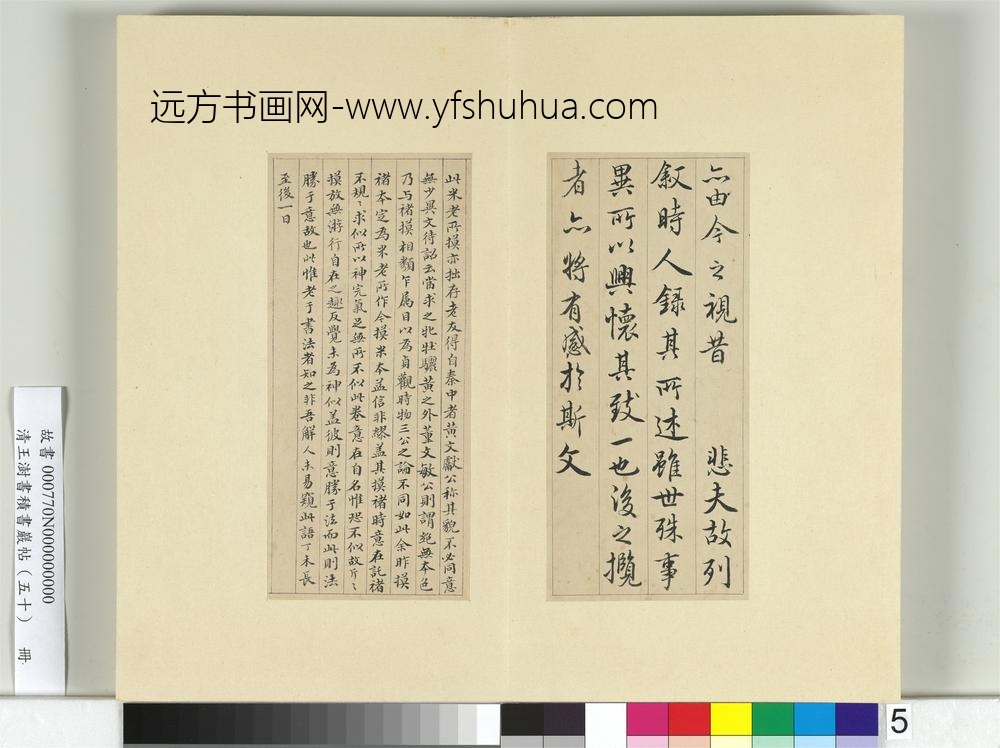 远方书画网-www.yfshuhua.com
亦由今之視昔 悲夫故列
敘時人錄其所述雖世殊事
異所以興懷其致一也後之攬
者亦將有感於斯文
此米老所摸亦拙存老友得自秦中者黄文獻公称其貌不必同意
無少異文待詔云當求之牝牡驪黄之外董文敏公則謂絕無本色
乃与褚摸相類乍属目以為貞觀時物三公之論不同如此余昨摸
褚本定為米老所作今摸米本益信非繆盖其摸褚時意在託褚
不規〻求似所以神完氣足無所不似此卷意在自名惟恐不似故斤〻
摸放無游行自在之趣反覺未為神似盖彼則意勝于法而此則法
勝于意故也此惟老于書法者知之非吾解人未易窺此語丁未長
至後一日
故書 000770N000000000
清王澍書積書巖帖（五十） 冊
5